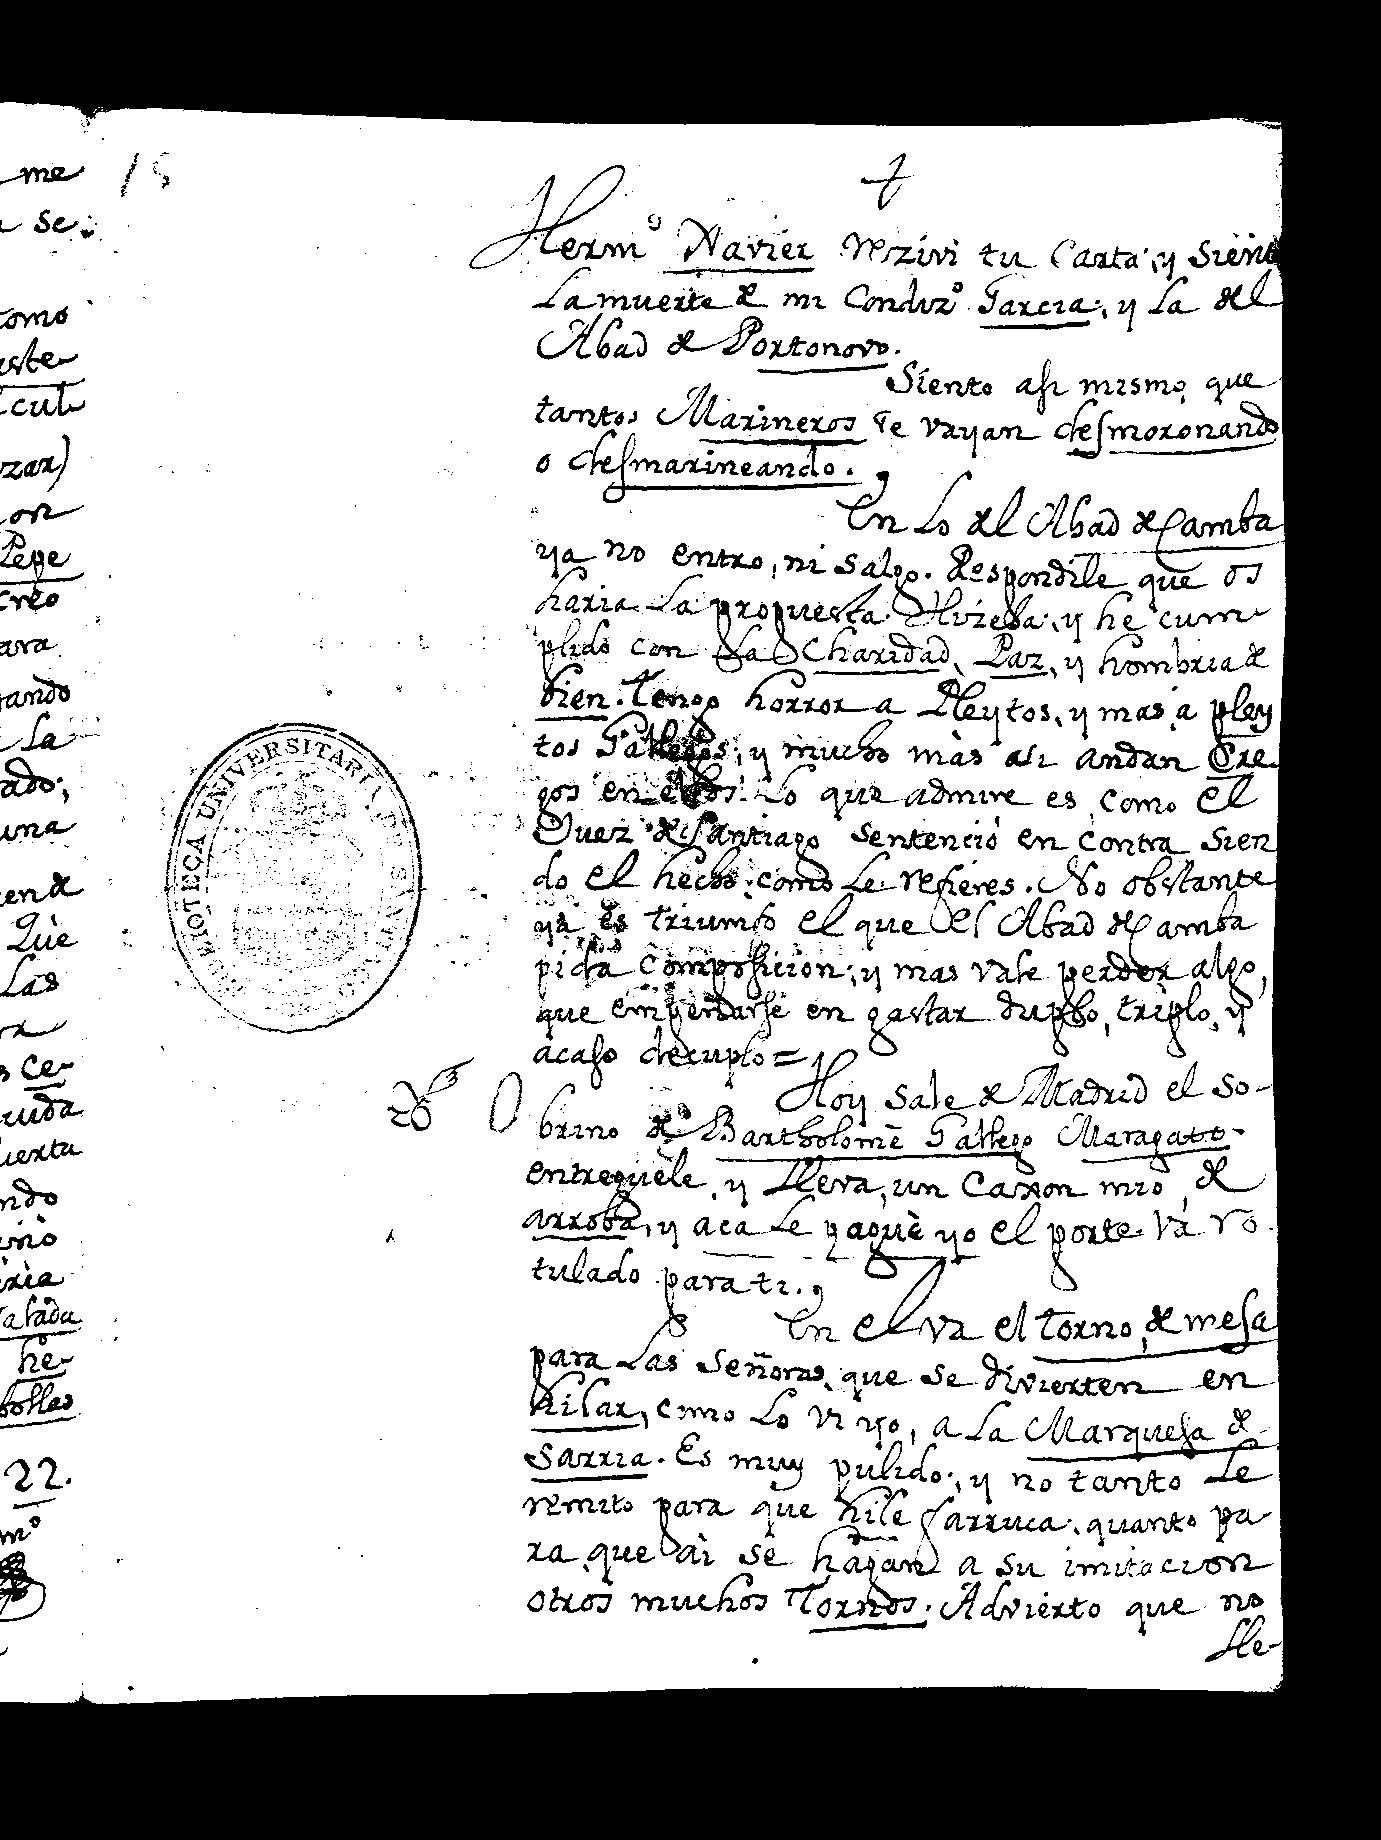 me
se.
tomo
aste-
cul-
zar)
on
Pepe
creo
ara
tando
La
ado;
una
Que
Las
ce-
ruda
ierta
ndo
alada
he-
bollas
22.
mº
15
Hermº Xavier reziví tu Carta; y Siento
La muerte de mi Condizº Garcia; y La del
Abad de Portonovo.
Siento asi mismo, que
tantos Marineros se vayan desmoronando
o desmarineando.
En Lo del Abad de Camba
ya no entro, ni salgo. Respondile que os
haria La propuesta. Hizela; y he cum
plido con La Charidad, Paz, y hombria de
bien. Tengo horror a Pleytos, y mas, a pley
tos Gallegos; y mucho màs si andan Cre-
gos en ellos. Lo que admire es, como el
Juez de Santiago sentenció en contra sien
do el hecho, como Le refieres. No obstante
ya es triumfo el que el Abad de Camba
pida Composicion; y mas vale perder algo,
que empeñarse en gastar duplo, triplo, y
acaso decuplo =
28 Hoy sale de Madrid el so-
brino de Bartholomè Gallego Maragato.
entreguèle, y Lleva, un Caxon mio, de
arroba, y aca Le paguè yo el porte. Và ro
tulado para ti.
En el va el torno, de mesa
para Las Señoras, que se divierten en
hilar, como Lo vi yo, a La Marquesa de
Sarria. Es muy pulido; y no tanto Le
remito para que hile Farruca, quanto pa-
ra que aì se hagan a su imitacion
otros muchos Tornos. Advierto que no
Lle-
BIBLIOTECA UNIVERSITARIA DE SANTIAGO